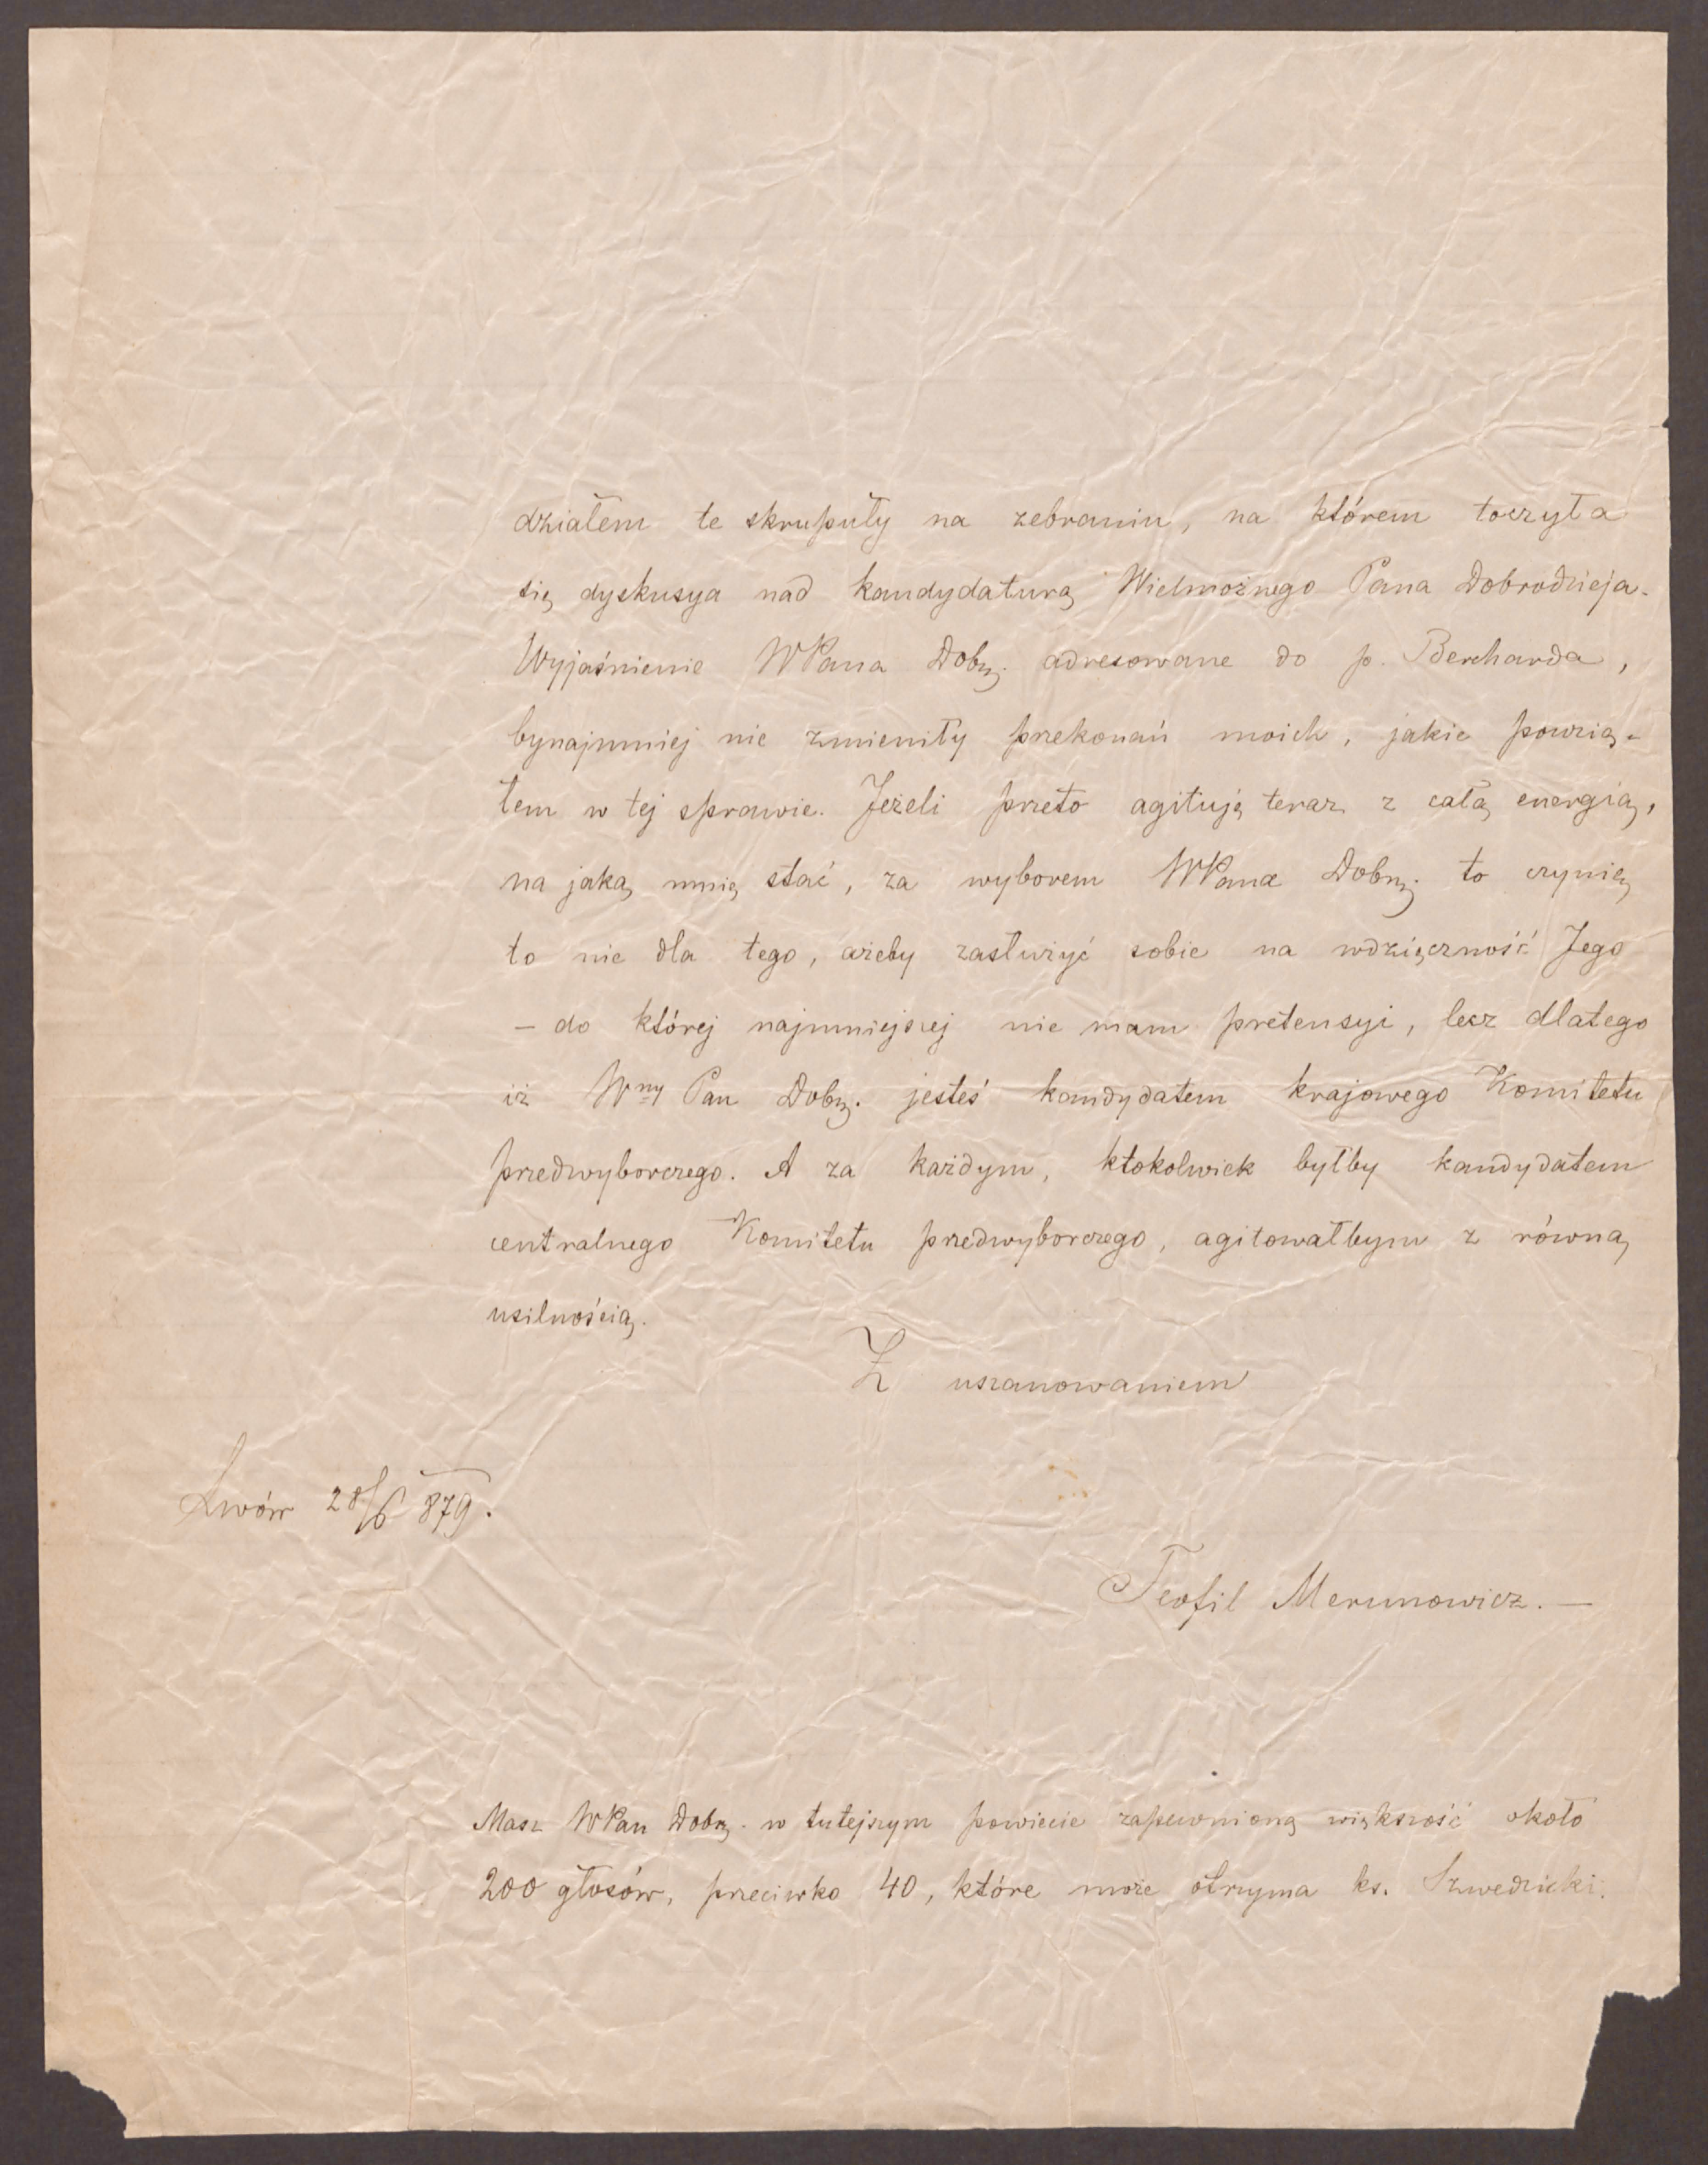 działem te skrupuły na zebraniu, na którem toczyła
się dyskusya nad kandydaturą Wielmożnego Pana Dobrodzieja.
Wyjaśnienie WPana Dobrz. adresowane do p. Bercharda,
bynajmniej nie zmieniły przekonań moich, jakie powzią-
łem w tej sprawie. Jeżeli przeto agituję teraz z całą energią,
na jaką mnię stać, za wyborem WPana Dobrz. to czynię
to nie dla tego, ażeby zasłużyć sobie na wdzięczność Jego
– do której najmniejszej nie mam pretensyi, lecz dlatego
iż Wny Pan Dobrz. jesteś kandydatem krajowego Komitetu
przedwyborczego. A za każdym, ktokolwiek byłby kandydatem
centralnego Komitetu przedwyborczego, agitowałbym z równą
usilnością.
Z uszanowaniem
Lwów 28/6 879.
Teofil Merunowicz. –
Masz WPan Dobrz. w tutejszym powiecie zapewnioną większość około
200 głosów, przeciwko 40, które może otrzyma ks. Szwedzicki.